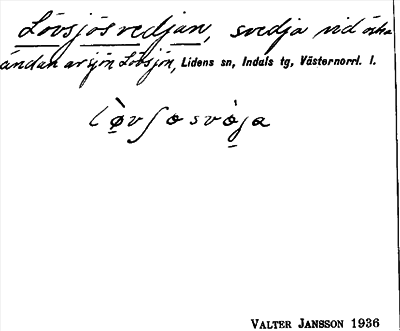 Lövsjösvedjan, svedja vid östra
ändan av sjön Lövsjön, Lidens sn, Indals tg, Västernorrl. l.
VALTER JANSSON 1936